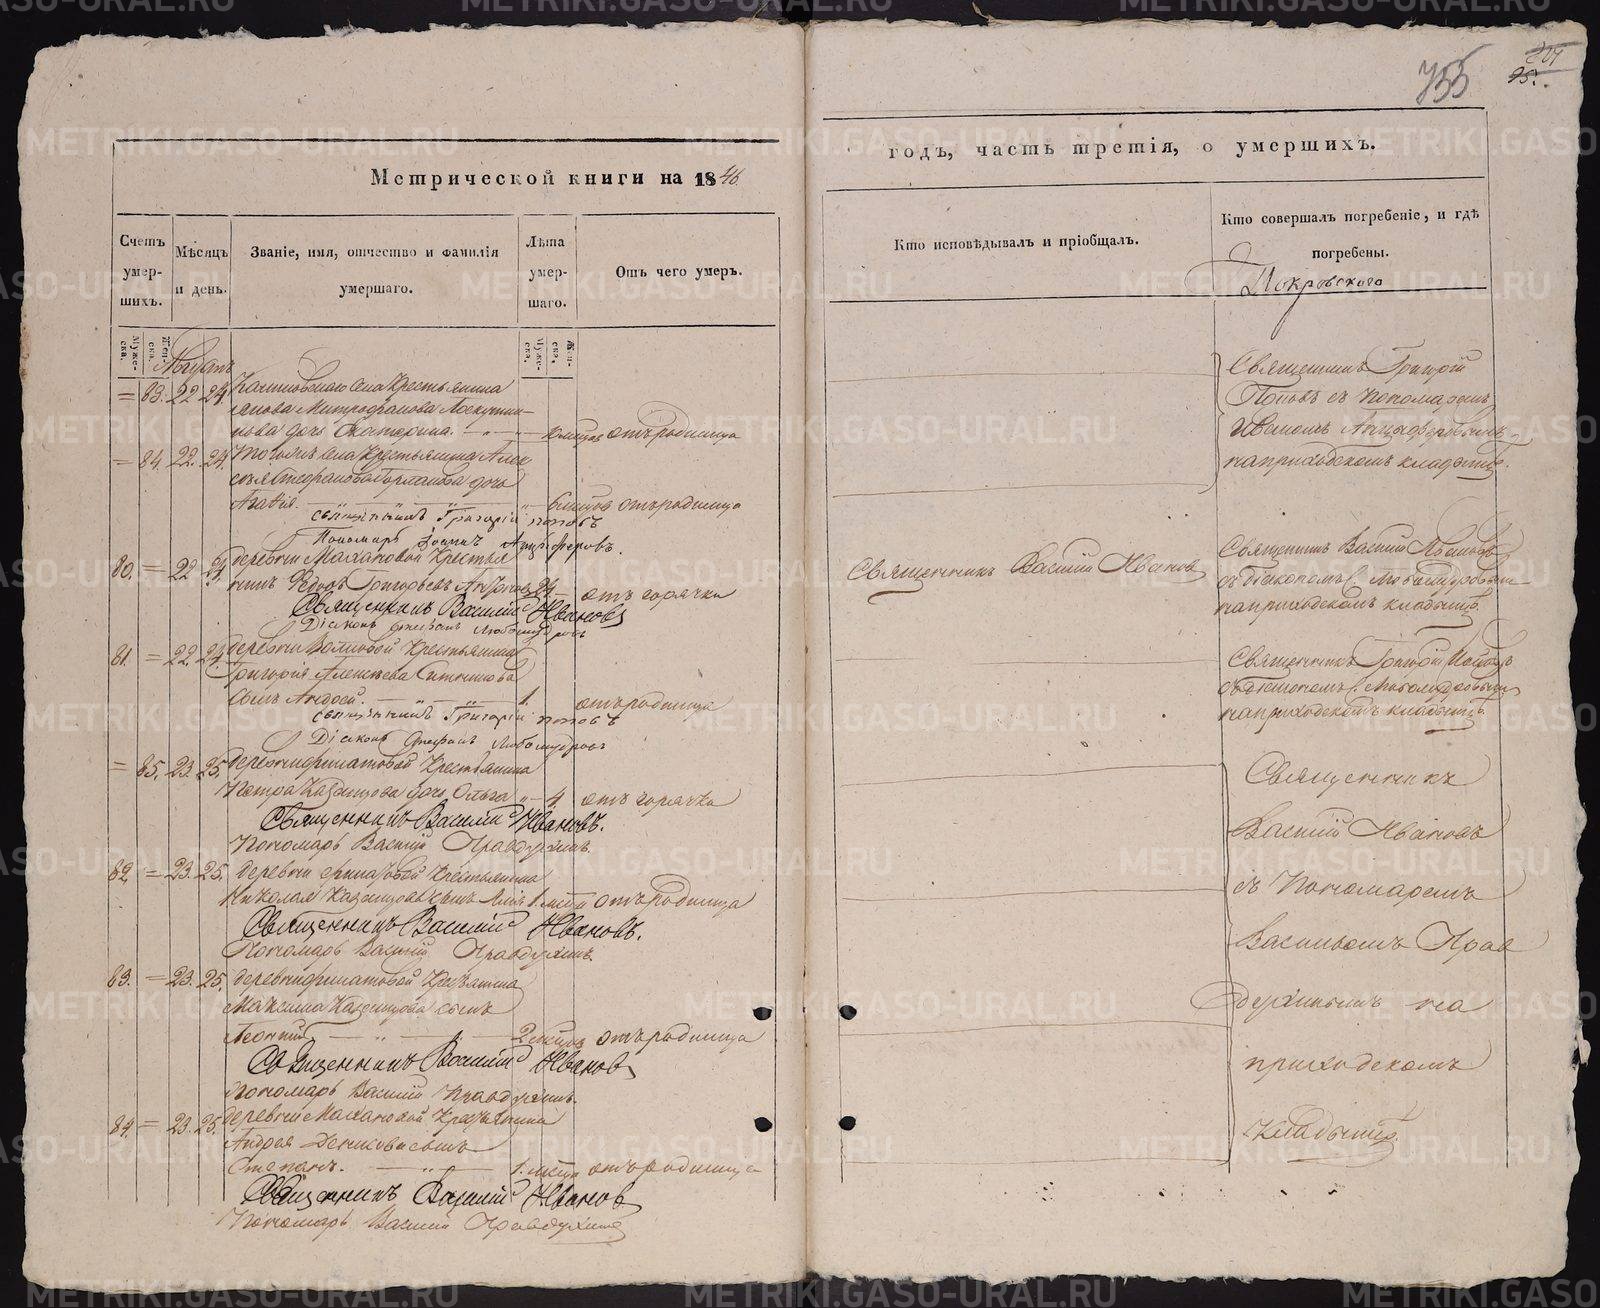 755
95.
Метрической книги на 1846.
годъ, часть третія, о умершихъ.
Счетъ умер-шихъ.
Мѣсяцъ и день.
Званіе, имя, отчество и фамилія умершаго.
Лѣта умер-шаго.
Отъ чего умеръ.
Кто исповѣдывалъ и пріобщалъ.
Кто совершалъ погребеніе, и гдѣ погребены.
Покровского
Муже-ска.
Жен-ска.
Муже-ска.
Жен-ска.
Августъ
= 83. 22 24. села Крестьянина
Митрофанова
дочь Екатерина. отъ родимца
= 84. 22. 24. села Крестьянина Алек
сѣя дочь
Агафія. отъ родимца
священникъ Григорій Поповъ
Пономарь Іоаннъ Анциферовъ.
80. = 22 24. деревни Махановой Крестья
нинъ Григорьевъ 24 отъ горячки
Священникъ Василій Ивановъ
Діаконъ Стефанъ Любомудровъ
81. = 22. 24. деревни Крестьянина
Григорія Алексѣева Ситникова
сынъ Андрей. 1. отъ родимца
священникъ Григорій Поповъ
Діаконъ Стефанъ Любомудровъ
= 85. 23. 25. деревни Крестьянина
Петра Казанцова дочь Ольга 4. отъ горячки
Священникъ Василій Ивановъ.
Пономарь Василій Правдухинъ.
82. = 23. 25. деревни Крестьянина
Николая Казанцова сынъ 1. отъ родимца
Священникъ Василій Ивановъ.
Пономарь Василій Правдухинъ.
83. = 23. 25. деревни Крестьянина
Максима Казанцова сынъ
Леонтій 2 отъ родимца
Священникъ Василій Ивановъ
Пономарь Василій Правдухинъ.
84. = 23. 25. деревни Махановой Крестьянина
Андрея сынъ
Степанъ. 1. отъ родимца
Священникъ Василій Ивановъ
Пономарь Василій Правдухинъ
Священникъ Василій Ивановъ
Священникъ Григорій
Поповъ съ Пономаремъ
Иваномъ Анциферовымъ
на приходскомъ кладбищѣ.
Священникъ Василій Ивановъ
съ діакономъ С. Любомудровымъ
на приходскомъ кладбищѣ.
Священникъ Григорій Поповъ
съ діакономъ С. Любомудровымъ
на приходскомъ кладбищѣ.
Священникъ
Василій Ивановъ
съ Пономаремъ
Васильемъ Прав
духинымъ на
приходскомъ
кладбищѣ.
METRIKI.GASO-URAL.RU